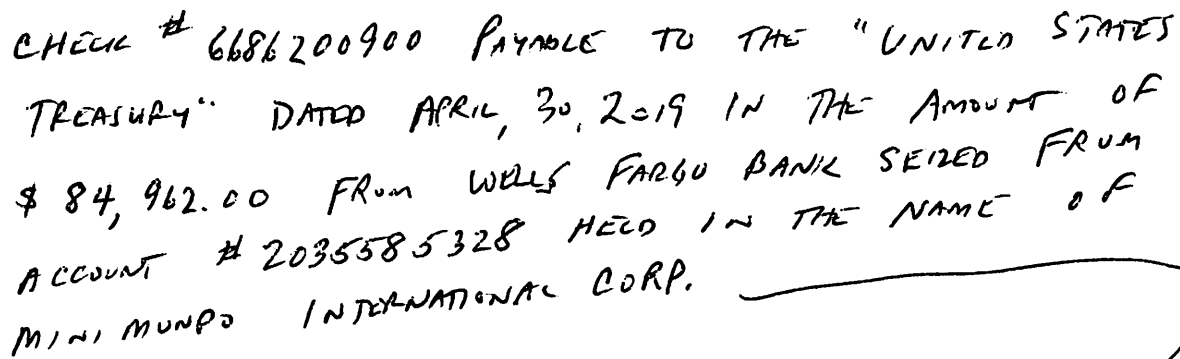 CHECK # 6686200900 PAYABLE TO THE "UNITED STATES
TREASURY" DATED APRIL, 30, 2019 IN THE AMOUNT OF
$ 84,962.00 FROM WELLS FARGO BANK SEIZED FROM
ACCOUNT # 2035585328 HELD IN THE NAME OF
MINI MUNDO INTERNATIONAL CORP.